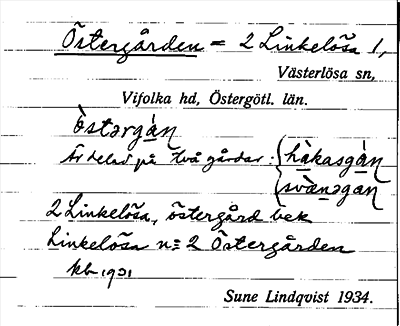 Östergården = 2 Linkelösa 1,
Västerlösa sn,
Vifolka hd, Östergötl. län.
östərgán
Är delad på två gårdar: hàkasgán
svænəgan
2 Linkelösa, östergård bek
Linkelösa n= 2 Östergården
kb 1931
Sune Lindqvist 1934.